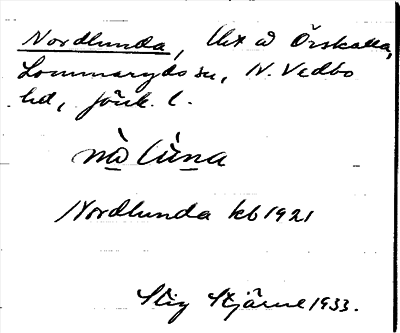 Nordlunda, lht u Örskatea,
Lommaryds sn, N. Vedbo
hd, Jönk. l.
nɷ̀ lùna
Nordlunda kb 1921
Stig Stjärne 1933.